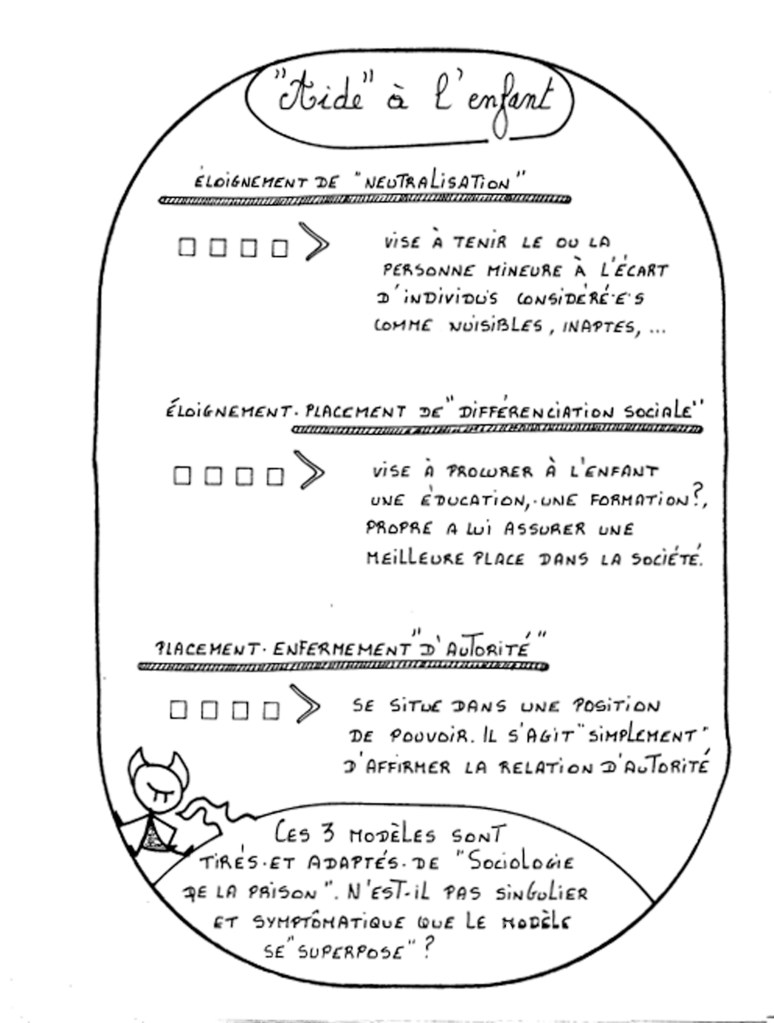 "Aide" à l'enfant
ÉLOIGNEMENT DE "NEUTRALISATION"
VISE À TENIR LE OU LA
PERSONNE MINEURE À L'ÉCART
D'INDIVIDUS CONSIDÉRÉ·E·S
COMME NUISIBLES, INAPTES, ...
ÉLOIGNEMENT. PLACEMENT DE "DIFFÉRENCIATION SOCIALE"
VISE À PROCURER À L'ENFANT
UNE ÉDUCATION, - UNE FORMATION?,
PROPRE A LUI ASSURER UNE
MEILLEURE PLACE DANS LA SOCIÉTÉ.
PLACEMENT. ENFERMEMENT "D'AUTORITÉ"
SE SITUE DANS UNE POSITION
DE POUVOIR. IL S'AGIT "SIMPLEMENT"
D'AFFIRMER LA RELATION D'AUTORITÉ
CES 3 MODÈLES SONT
TIRÉS. ET ADAPTÉS. DE "SOCIOLOGIE
DE LA PRISON". N'EST-IL PAS SINGULIER
ET SYMPTÔMATIQUE QUE LE MODÈLE
SE "SUPERPOSE" ?